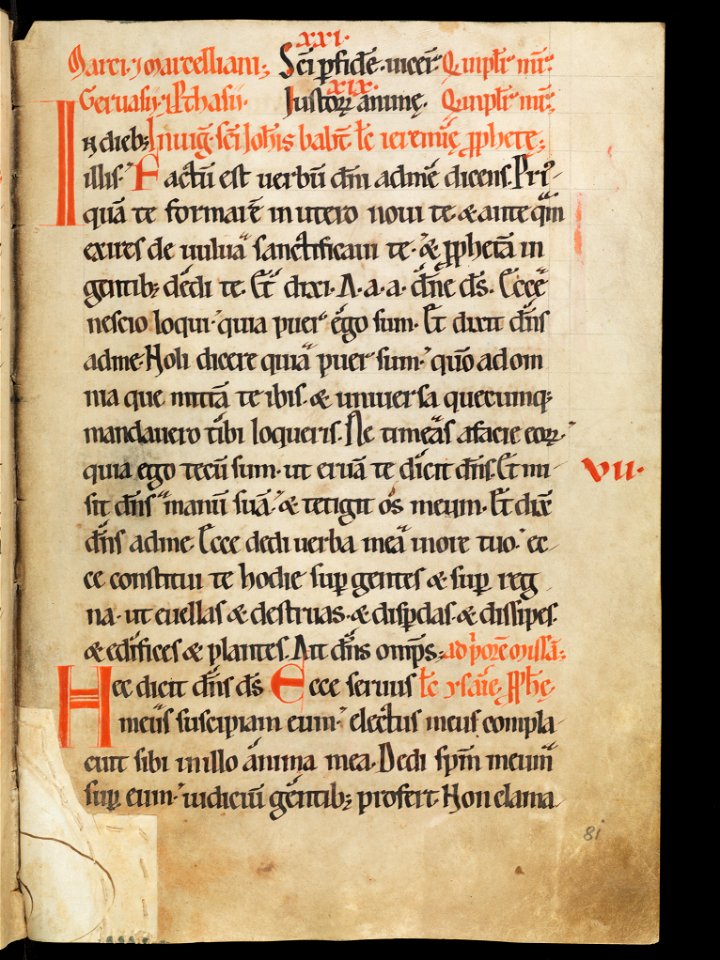 .xxi.
Marci. ⁊ marcelliani; Sc̄i ꝑ fidē. uicer̄ Quipłr mīr
.xix.
Geruasij. ⁊ Ꝓthasij. Iustoꝝ animę. Quipłr mīr
In dieb; In uiḡ. sc̄i Ioh̄is babt̄. łc̄ ieremię ꝓphetę;
illis. Factū est uerbū dn̄i ad me dicens. Pri
quā te formarē in utero noui te. & ante qm̄
exires de uulua sanctificaui te. & ꝓphetā in
gentib; dedi te. Et dixi. A. a. a. dn̄e ds̄. Ecce
nescio loqui quia puer ego sum. Et dixit dn̄s
ad me. Noli dicere quia puer sum. quō ad om
nia que mittā te ibis. & uniuersa quecumq;
mandauero tibi loqueris. Ne timeas a facie eoꝝ.
quia ego tecū sum. ut eruā te dicit dn̄s. Et mi
.vii.
sit dn̄s manū suā. & tetigit os meum. Et dix̄
dn̄s ad me. Ecce dedi uerba mea in ore tuo. ec
ce constitui te hodie suꝑ gentes & suꝑ reg
na. ut euellas & destruas. & disꝑdas. & dissipes.
& edifices & plantes. Ait dn̄s omp̄s. ad p̄orē missā;
Hec dicit dn̄s ds̄ Ecce seruus łc̄ ysaię. ꝓphę.
meus suscipiam eum. electus meus compla
cuit sibi in illo anima mea. Dedi sp̄m meum
suꝑ eum. iudiciū gentib; profert Non clama
81